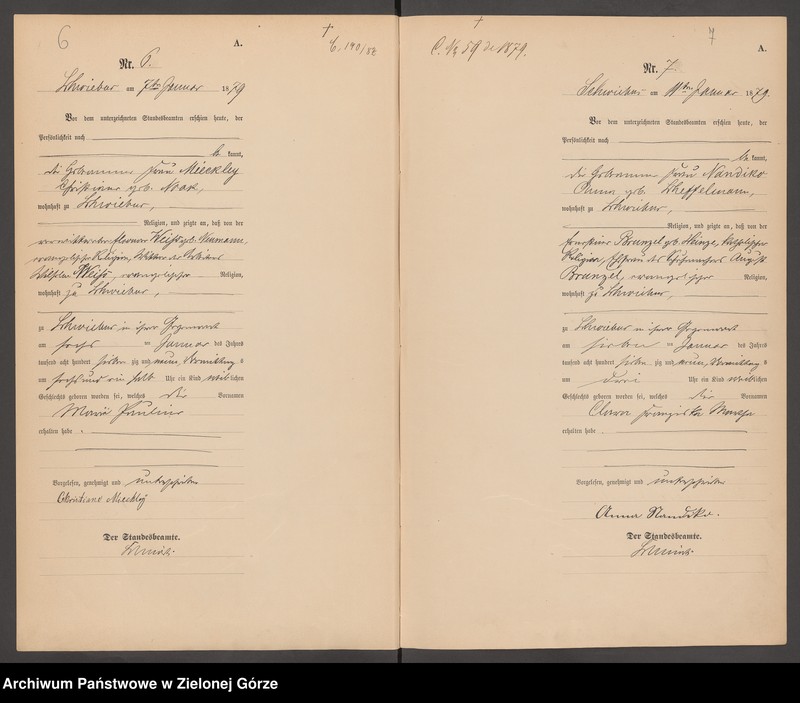 6
A.
† C. 190/82
Nr. 6.
Schwiebus am 7ten Januar 1879
Vor dem unterzeichneten Standesbeamten erschien heute, der
Persönlichkeit nach
be kannt,
die Hebamme Frau Mieckley
Christiane geb. Noak,
wohnhaft zu Schwiebus,
Religion, und zeigte an, daß von der
geb. Neumann,
evangelischer Religion, Wittwe des
Wilhelm Weiß, evangelischer Religion,
wohnhaft zu Schwiebus,
zu Schwiebus in ihrer Gegenwart
am sechs ten Januar des Jahres
tausend acht hundert sieben zig und neun, Vormittag s
um sechs und ein halb Uhr ein Kind weiblichen
Geschlechts geboren worden sei, welches die Vornamen
Maria Pauline
erhalten habe.
Vorgelesen, genehmigt und unterschrieben
Christiane Mieckley
Der Standesbeamte.
†
C. No 59 de 1879.
7
A.
Nr. 7
Schwiebus am 11ten Januar 1879.
Vor dem unterzeichneten Standesbeamten erschien heute, der
Persönlichkeit nach
be kannt,
die Hebamme Frau Nandiko
Anna geb. Scheffelmann,
wohnhaft zu Schwiebus,
Religion, und zeigte an, daß von der
Ernestine Branzel geb. Heinze, katholischer
Religion, Ehefrau des Schuhmachers August
Branzel, evangelischer Religion,
wohnhaft zu Schwiebus,
zu Schwiebus in ihrer Gegenwart
am sieben ten Januar des Jahres
tausend acht hundert sieben zig und neun, Vormittag s
um drei Uhr ein Kind weiblichen
Geschlechts geboren worden sei, welches die Vornamen
Clara Franziska Martha
erhalten habe
Vorgelesen, genehmigt und unterschrieben
Anna Nandiko.
Der Standesbeamte.
Archiwum Państwowe w Zielonej Górze